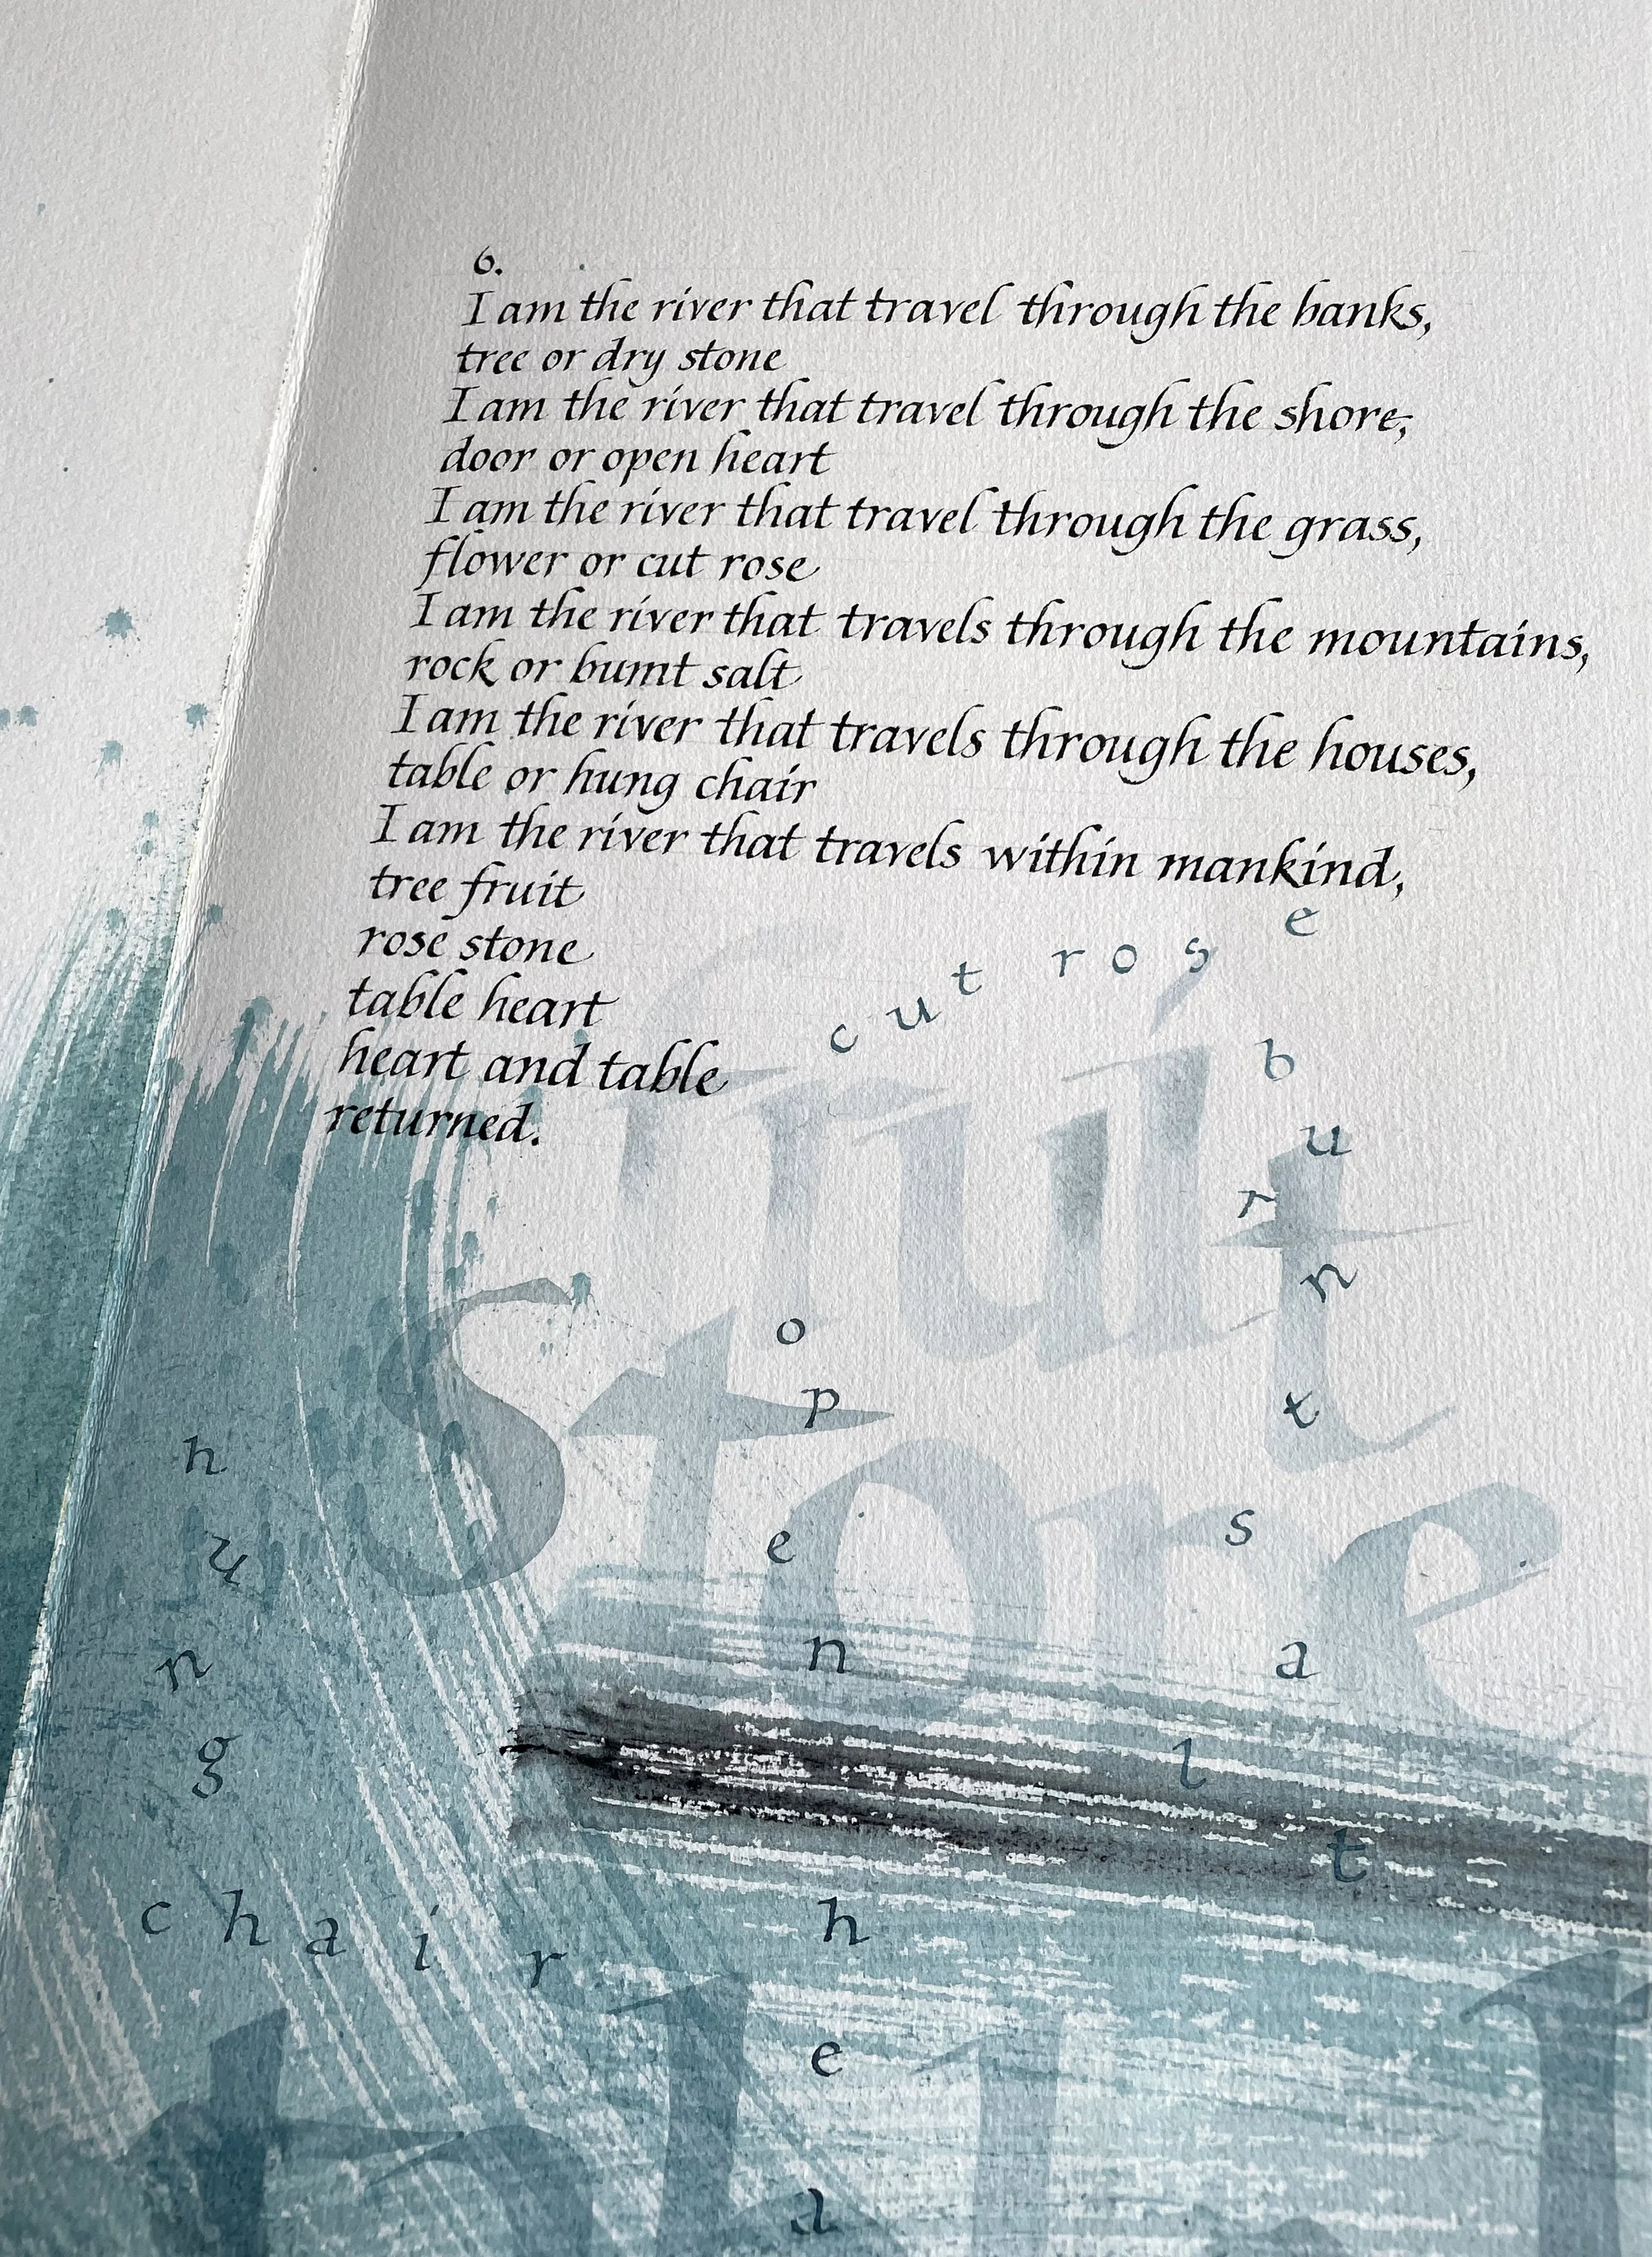 6.
I am the river that travel through the banks,
tree or dry stone
I am the river that travel through the shore,
door or open heart
I am the river that travel through the grass,
flower or cut rose
I am the river that travels through the mountains,
rock or burnt salt
I am the river that travels through the houses,
table or hung chair
I am the river that travels within mankind,
tree fruit
rose stone
table heart
heart and table
returned.
cut rose
burnt salt
fruit
Store
open hea
hung
chair